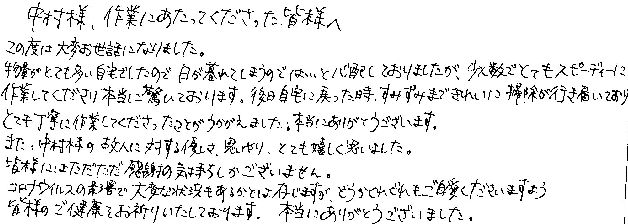 中村様、作業にあたってくださった皆様へ
この度は大変お世話になりました。
物量がとても多い自宅でしたので日が暮れてしまうのではないかと心配しておりましたが、少人数でとてもスピーディーに
作業してくださり本当に驚いております。後日自宅に戻った時、すみずみまできれいに掃除が行き届いており
とても丁寧に作業してくださったことがうかがえました。本当にありがとうございます。
また、中村様の故人に対する優しさ、思いやり、とても嬉しく思いました。
皆様にはただただ感謝の気持ちしかございません。
コロナウイルスの影響で大変な状況もあるかとは存じますが、どうかくれぐれもご自愛くださいますよう
皆様のご健康をお祈りいたしております。本当にありがとうございました。